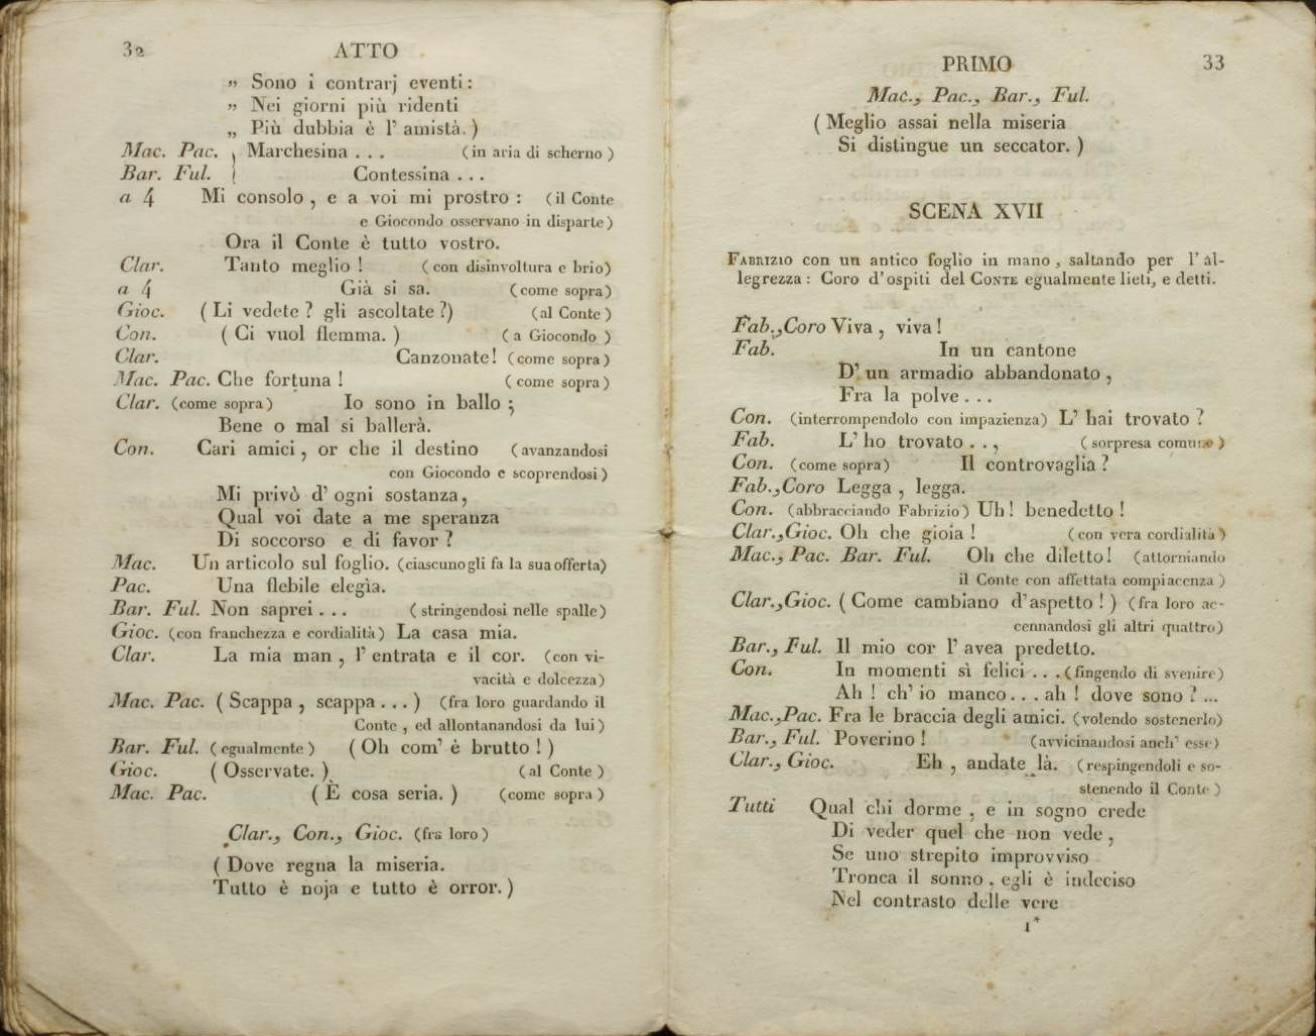 32 ATTO
„ Sono i contrarj eventi :
„ Nei giorni più ridenti
„ Più dubbia è l' amistà. )
Mac. Pac. Marchesina . . . (in aria di scherno)
Bar. Ful. Contessina . . .
a 4 Mi consolo , e a voi mi prostro : (il Conte
e Giocondo osservano in disparte)
Ora il Conte è tutto vostro.
Clar. Tanto meglio ! (con disinvoltura e brio)
a 4 Già si sa. (come sopra)
Gioc. (Li vedete ? gli ascoltate ?) (al Conte)
Con. ( Ci vuol flemma. ) (a Giocondo )
Clar. Canzonate! (come sopra)
Mac. Pac. Che fortuna ! (come sopra)
Clar. (come sopra) Io sono in ballo ;
Bene o mal si ballerà.
Con. Cari amici , or che il destino (avanzandosi
con Giocondo e scoprendosi)
Mi privò d' ogni sostanza,
Qual voi date a me speranza
Di soccorso e di favor ?
Mac. Un articolo sul foglio. (ciascuno gli fa la sua offerta)
Pac. Una flebile elegìa.
Bar. Ful. Non saprei . . . (stringendosi nelle spalle)
Gioc. (con franchezza e cordialità) La casa mia.
Clar. La mia man , l' entrata e il cor. (con vi-
vacità e dolcezza)
Mac. Pac. ( Scappa , scappa . . . ) (fra loro guardando il
Conte , ed allontanandosi da lui)
Bar. Ful. (egualmente) (Oh com' è brutto ! )
Gioc. ( Osservate. ) (al Conte)
Mac. Pac. ( È cosa seria. ) (come sopra)
Clar., Con., Gioc. (fra loro)
( Dove regna la miseria.
Tutto è noja e tutto è orror. )
PRIMO 33
Mac., Pac., Bar., Ful.
( Meglio assai nella miseria
Si distingue un seccator. )
SCENA XVII
FABRIZIO con un antico foglio in mano , saltando per l' al-
legrezza : Coro d' ospiti del CONTE egualmente lieti, e detti.
Fab., Coro Viva , viva !
Fab. In un cantone
D' un armadio abbandonato ,
Fra la polve . . .
Con. (interrompendolo con impazienza) L' hai trovato ?
Fab. L' ho trovato . . , (sorpresa comune)
Con. (come sopra) Il controvaglia ?
Fab., Coro Legga , legga.
Con. (abbracciando Fabrizio) Uh ! benedetto !
Clar., Gioc. Oh che gioia ! (con vera cordialità)
Mac., Pac. Bar. Ful. Oh che diletto! (attorniando
il Conte con affettata compiacenza)
Clar., Gioc. ( Come cambiano d'aspetto ! ) (fra loro ac-
cennandosi gli altri quattro)
Bar., Ful. Il mio cor l' avea predetto.
Con. In momenti sì felici . . . (fingendo di svenire)
Ah ! ch' io manco . . . ah ! dove sono ? ...
Mac., Pac. Fra le braccia degli amici. (volendo sostenerlo)
Bar., Ful. Poverino ! (avvicinandosi anch' esse)
Clar., Gioc. Eh , andate là. (respingendoli e so-
stenendo il Conte)
Tutti Qual chi dorme , e in sogno crede
Di veder quel che non vede ,
Se uno strepito improvviso
Tronca il sonno , egli è indeciso
Nel contrasto delle vere
1*